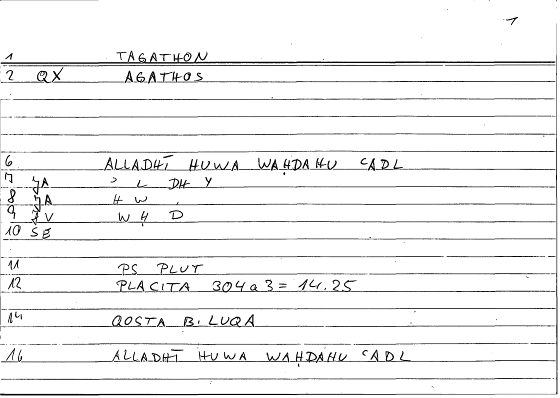 1
1 TAGATHON
2 QX AGATHOS
6 ALLADHĪ HUWA WAḤDAHU ʿADL
7 JA ʾ L DH Y
8 JA H W
9 JV W Ḥ D
10 SE
11 PS PLUT
12 PLACITA 304a3 = 14.25
14 QOSTA B. LUQA
16 ALLADHĪ HUWA WAḤDAHU ʿADL